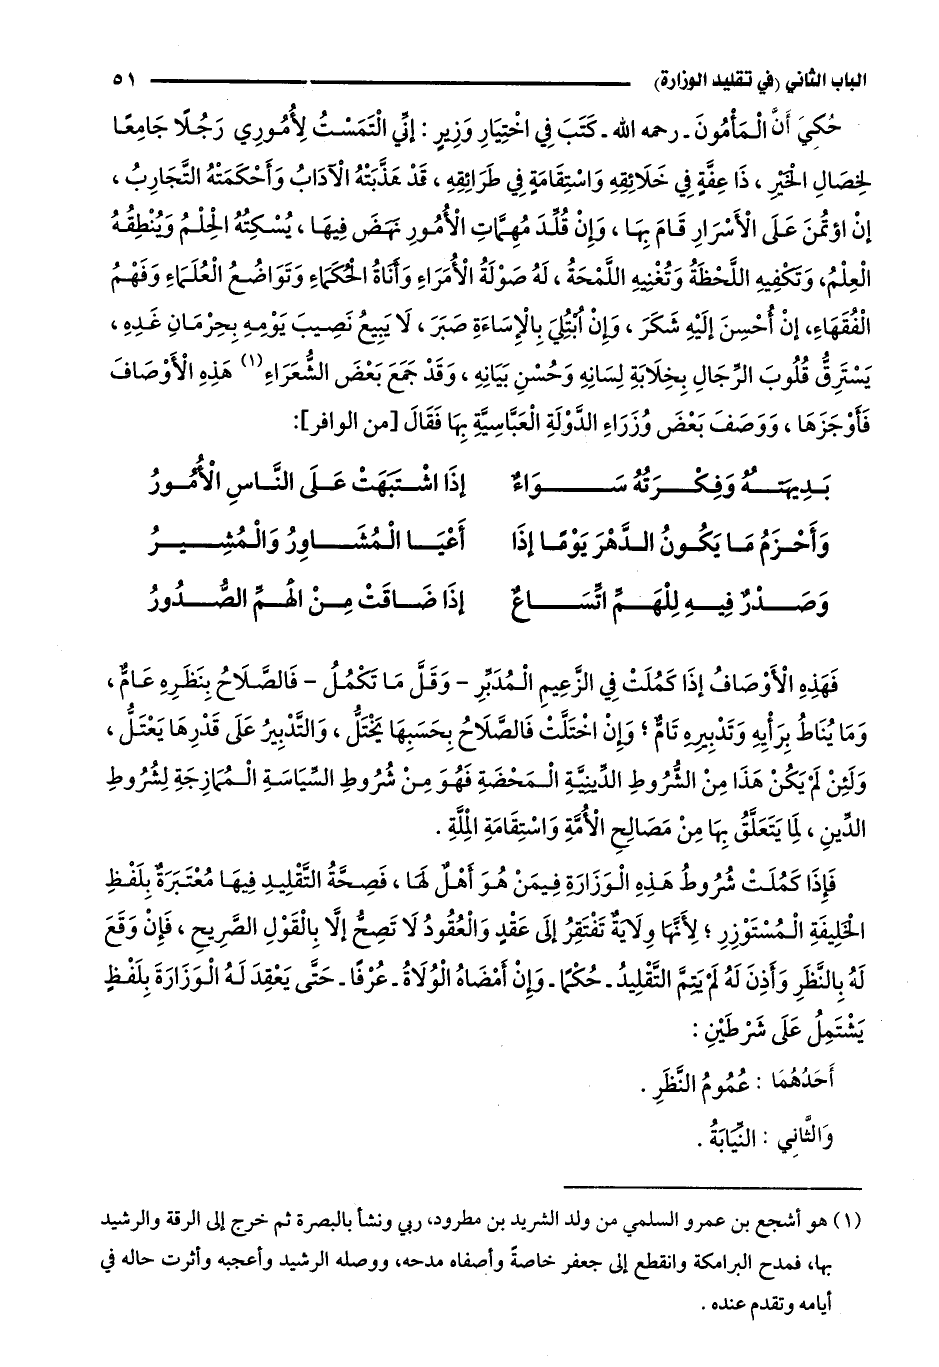 الباب الثاني (في تقليد الوزارة) ٥١
حُكِيَ أَنَّ الْمَأْمُونَ ـ رحمه الله ـ كَتَبَ فِي اخْتِيَارِ وَزِيرٍ : إِنِّي الْتَمَسْتُ لِأُمُورِي رَجُلًا جَامِعًا
لِخِصَالِ الْخَيْرِ ، ذَا عِفَّةٍ فِي خَلَائِقِهِ وَاسْتِقَامَةٍ فِي طَرَائِقِهِ ، قَدْ هَذَّبَتْهُ الْآدَابُ وَأَحْكَمَتْهُ التَّجَارِبُ ،
إِنْ اؤتُمِنَ عَلَى الْأَسْرَارِ قَامَ بِهَا ، وَإِنْ قُلِّدَ مُهِمَّاتِ الْأُمُورِ نَهَضَ فِيهَا ، يُسْكِتُهُ الْحِلْمُ وَيُنْطِقُهُ
الْعِلْمُ، وَتَكْفِيهِ اللَّحْظَةُ وَتُغْنِيهِ اللَّمْحَةُ ، لَهُ صَوْلَةُ الْأُمَرَاءِ وَأَنَاةُ الْحُكَمَاءِ وَتَوَاضُعُ الْعُلَمَاءِ وَفَهْمُ
الْفُقَهَاءِ، إِنْ أُحْسِنَ إِلَيْهِ شَكَرَ ، وَإِنْ ابْتُلِيَ بِالْإِسَاءَةِ صَبَرَ ، لَا يَبِيعُ نَصِيبَ يَوْمِهِ بِحِرْمَانِ غَدِهِ ،
يَسْتَرِقُّ قُلُوبَ الرِّجَالِ بِخِلَابَةِ لِسَانِهِ وَحُسْنِ بَيَانِهِ ، وَقَدْ جَمَعَ بَعْضَ الشُّعَرَاءِ(١) هَذِهِ الْأَوْصَافَ
فَأَوْجَزَهَا ، وَوَصَفَ بَعْضَ وُزَرَاءِ الدَّوْلَةِ الْعَبَّاسِيَّةِ بِهَا فَقَالَ [من الوافر]:
بَدِيهَتُهُ وَفِكْرَتُهُ سَوَاءٌ إِذَا اشْتَبَهَتْ عَلَى النَّاسِ الْأُمُورُ
وَأَحْزَمُ مَا يَكُونُ الدَّهْرَ يَوْمًا إِذَا أَعْيَا الْمُشَاوِرُ وَالْمُشِيرُ
وَصَدْرٌ فِيهِ لِلْهَمِّ اتِّسَاعٌ إِذَا ضَاقَتْ مِنْ الْهَمِّ الصُّدُورُ
فَهَذِهِ الْأَوْصَافُ إِذَا كَمُلَتْ فِي الزَّعِيمِ الْمُدَبِّرِ – وَقَلَّ مَا تَكْمُلُ – فَالصَّلَاحُ بِنَظَرِهِ عَامٌّ ،
وَمَا يُنَاطُ بِرَأْيِهِ وَتَدْبِيرِهِ تَامٌّ ؛ وَإِنْ اخْتَلَّتْ فَالصَّلَاحُ بِحَسَبِهَا يَخْتَلُّ ، وَالتَّدْبِيرُ عَلَى قَدْرِهَا يَعْتَلُّ ،
وَلَئِنْ لَمْ يَكُنْ هَذَا مِنْ الشُّرُوطِ الدِّينِيَّةِ الْمَحْضَةِ فَهُوَ مِنْ شُرُوطِ السِّيَاسَةِ الْمُمَازِجَةِ لِشُرُوطِ
الدِّينِ ، لِمَا يَتَعَلَّقُ بِهَا مِنْ مَصَالِحِ الْأُمَّةِ وَاسْتِقَامَةِ الْمِلَّةِ .
فَإِذَا كَمُلَتْ شُرُوطُ هَذِهِ الْوَزَارَةِ فِيمَنْ هُوَ أَهْلٌ لَهَا ، فَصِحَّةُ التَّقْلِيدِ فِيهَا مُعْتَبَرَةٌ بِلَفْظِ
الْخَلِيفَةِ الْمُسْتَوْزِرِ ؛ لِأَنَّهَا وِلَايَةٌ تَفْتَقِرُ إِلَى عَقْدٍ وَالْعُقُودُ لَا تَصِحُّ إِلَّا بِالْقَوْلِ الصَّرِيحِ ، فَإِنْ وَقَّعَ
لَهُ بِالنَّظَرِ وَأَذِنَ لَهُ لَمْ يَتِمَّ التَّقْلِيدُ ـ حُكْمًا ـ وَإِنْ أَمْضَاهُ الْوُلَاةُ ـ عُرْفًا ـ حَتَّى يَعْقِدَ لَهُ الْوَزَارَةَ بِلَفْظٍ
يَشْتَمِلُ عَلَى شَرْطَيْنِ :
أَحَدُهُمَا : عُمُومُ النَّظَرِ .
وَالثَّانِي : النِّيَابَةُ .
(١) هو أشجع بن عمرو السلمي من ولد الشريد بن مطرود، ربي ونشأ بالبصرة ثم خرج إلى الرقة والرشيد
بها، فمدح البرامكة وانقطع إلى جعفر خاصةً وأصفاه مدحه، ووصله الرشيد وأعجبه وأثرت حاله في
أيامه وتقدم عنده .